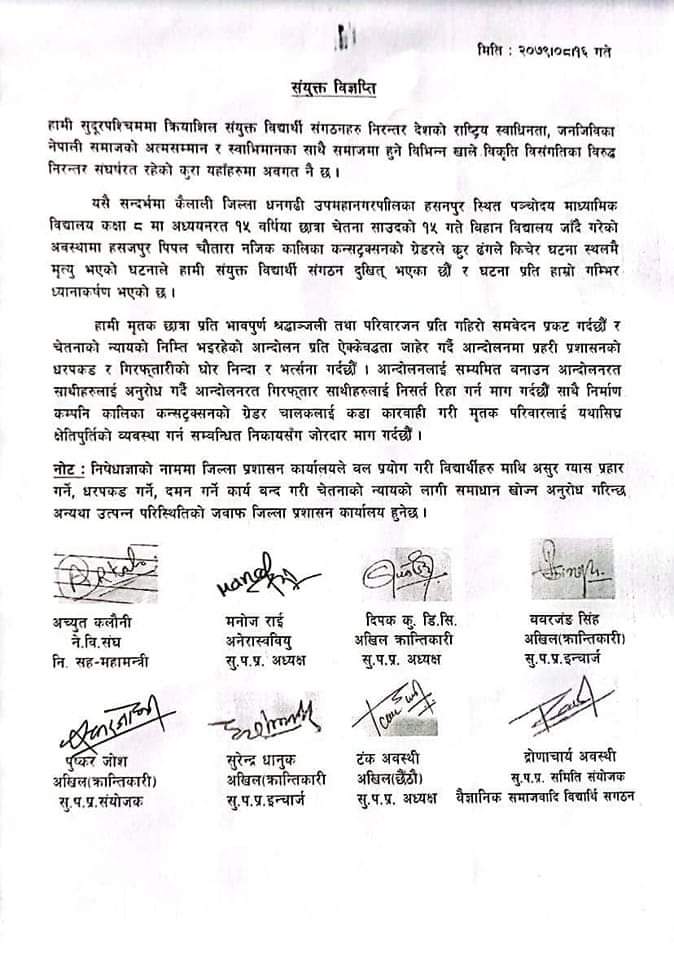 मिति : २०७९।०८।१६ गते
संयुक्त विज्ञप्ति
हामी सुदूरपश्चिममा क्रियाशिल संयुक्त विद्यार्थी संगठनहरु निरन्तर देशको राष्ट्रिय स्वाधिनता, जनजिविका
नेपाली समाजको अत्मसम्मान र स्वाभिमानका साथै समाजमा हुने विभिन्न खाले विकृति विसंगतिका विरुद्ध
निरन्तर संघर्षरत रहेको कुरा यहाँहरुमा अवगत नै छ ।
यसै सन्दर्भमा कैलाली जिल्ला धनगढी उपमहानगरपाीलका हसनपुर स्थित पञ्चोदय माध्यामिक
विद्यालय कक्षा ८ मा अध्ययनरत १५ वर्षिया छात्रा चेतना साउदको १५ गते विहान विद्यालय जाँदै गरेको
अवस्थामा हसजपुर पिपल चौतारा नजिक कालिका कन्सट्रक्सनको ग्रेडरले कुर ढंगले किचेर घटना स्थलमै
मृत्यु भएको घटनाले हामी संयुक्त विद्यार्थी संगठन दुखित् भएका छौं र घटना प्रति हाम्रो गम्भिर
ध्यानाकर्षण भएको छ ।
हामी मृतक छात्रा प्रति भावपुर्ण श्रद्धाञ्जली तथा परिवारजन प्रति गहिरो समवेदन प्रकट गर्दछौं र
चेतनाको न्यायको निम्ति भइरहेको आन्दोलन प्रति ऐक्केबद्धता जाहेर गर्दै आन्दोलनमा प्रहरी प्रशासनको
धरपकड र गिरफ्तारीको घोर निन्दा र भर्त्सना गर्दछौं । आन्दोलनलाई सम्यमित बनाउन आन्दोलनरत
साथीहरुलाई अनुरोध गर्दै आन्दोलनरत गिरफ्तार साथीहरुलाई निसर्त रिहा गर्न माग गर्दछौं साथै निर्माण
कम्पनि कालिका कन्सट्रक्सनको ग्रेडर चालकलाई कडा कारवाही गरी मृतक परिवारलाई यथासिघ्र
क्षेतिपुर्तिको व्यवस्था गर्न सम्वन्धित निकायसँग जोरदार माग गर्दछौं ।
नोट : निषेधाज्ञाको नाममा जिल्ला प्रशासन कार्यालयले वल प्रयोग गरी विद्यार्थीहरु माथि असुर ग्यास प्रहार
गर्ने, धरपकड गर्ने, दमन गर्ने कार्य वन्द गरी चेतनाको न्यायको लागी समाधान खोज्न अनुरोध गरिन्छ
अन्यथा उत्पन्न परिस्थितिको जवाफ जिल्ला प्रशासन कार्यालय हुनेछ ।
अच्युत कलौनी मनोज राई दिपक कु. डि.सि. यवरजंड सिंह
ने.वि.संघ अनेरास्ववियु अखिल क्रान्तिकारी अखिल(क्रान्तिकारी)
नि. सह-महामन्त्री सु.प.प्र. अध्यक्ष सु.प.प्र. अध्यक्ष सु.प.प्र.इन्चार्ज
पुष्कर जोश सुरेन्द्र धानुक टंक अवस्थी द्रोणाचार्य अवस्थी
अखिल(क्रान्तिकारी) अखिल(क्रान्तिकारी अखिल(छैठौ) सु.प.प्र. समिति संयोजक
सु.प.प्र.संयोजक सु.प.प्र.इन्चार्ज सु.प.प्र. अध्यक्ष वैज्ञानिक समाजवादि विद्यार्थि सगठन